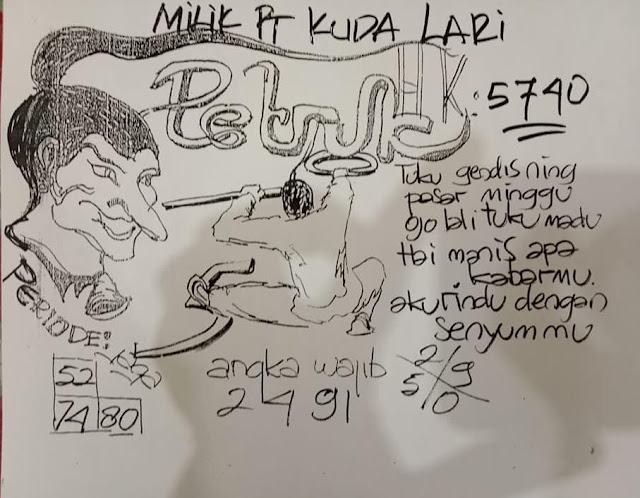 MILIK PT KUDA LARI
Petruk HK: 5740
Tuku gendis ning
pasar minggu
ojo bali tuku madu
Hai manis apa
kabarmu.
aku rindu dengan
senyummu
PERIODE:
52
74 80
angka wajib
2491
2/9
5/0